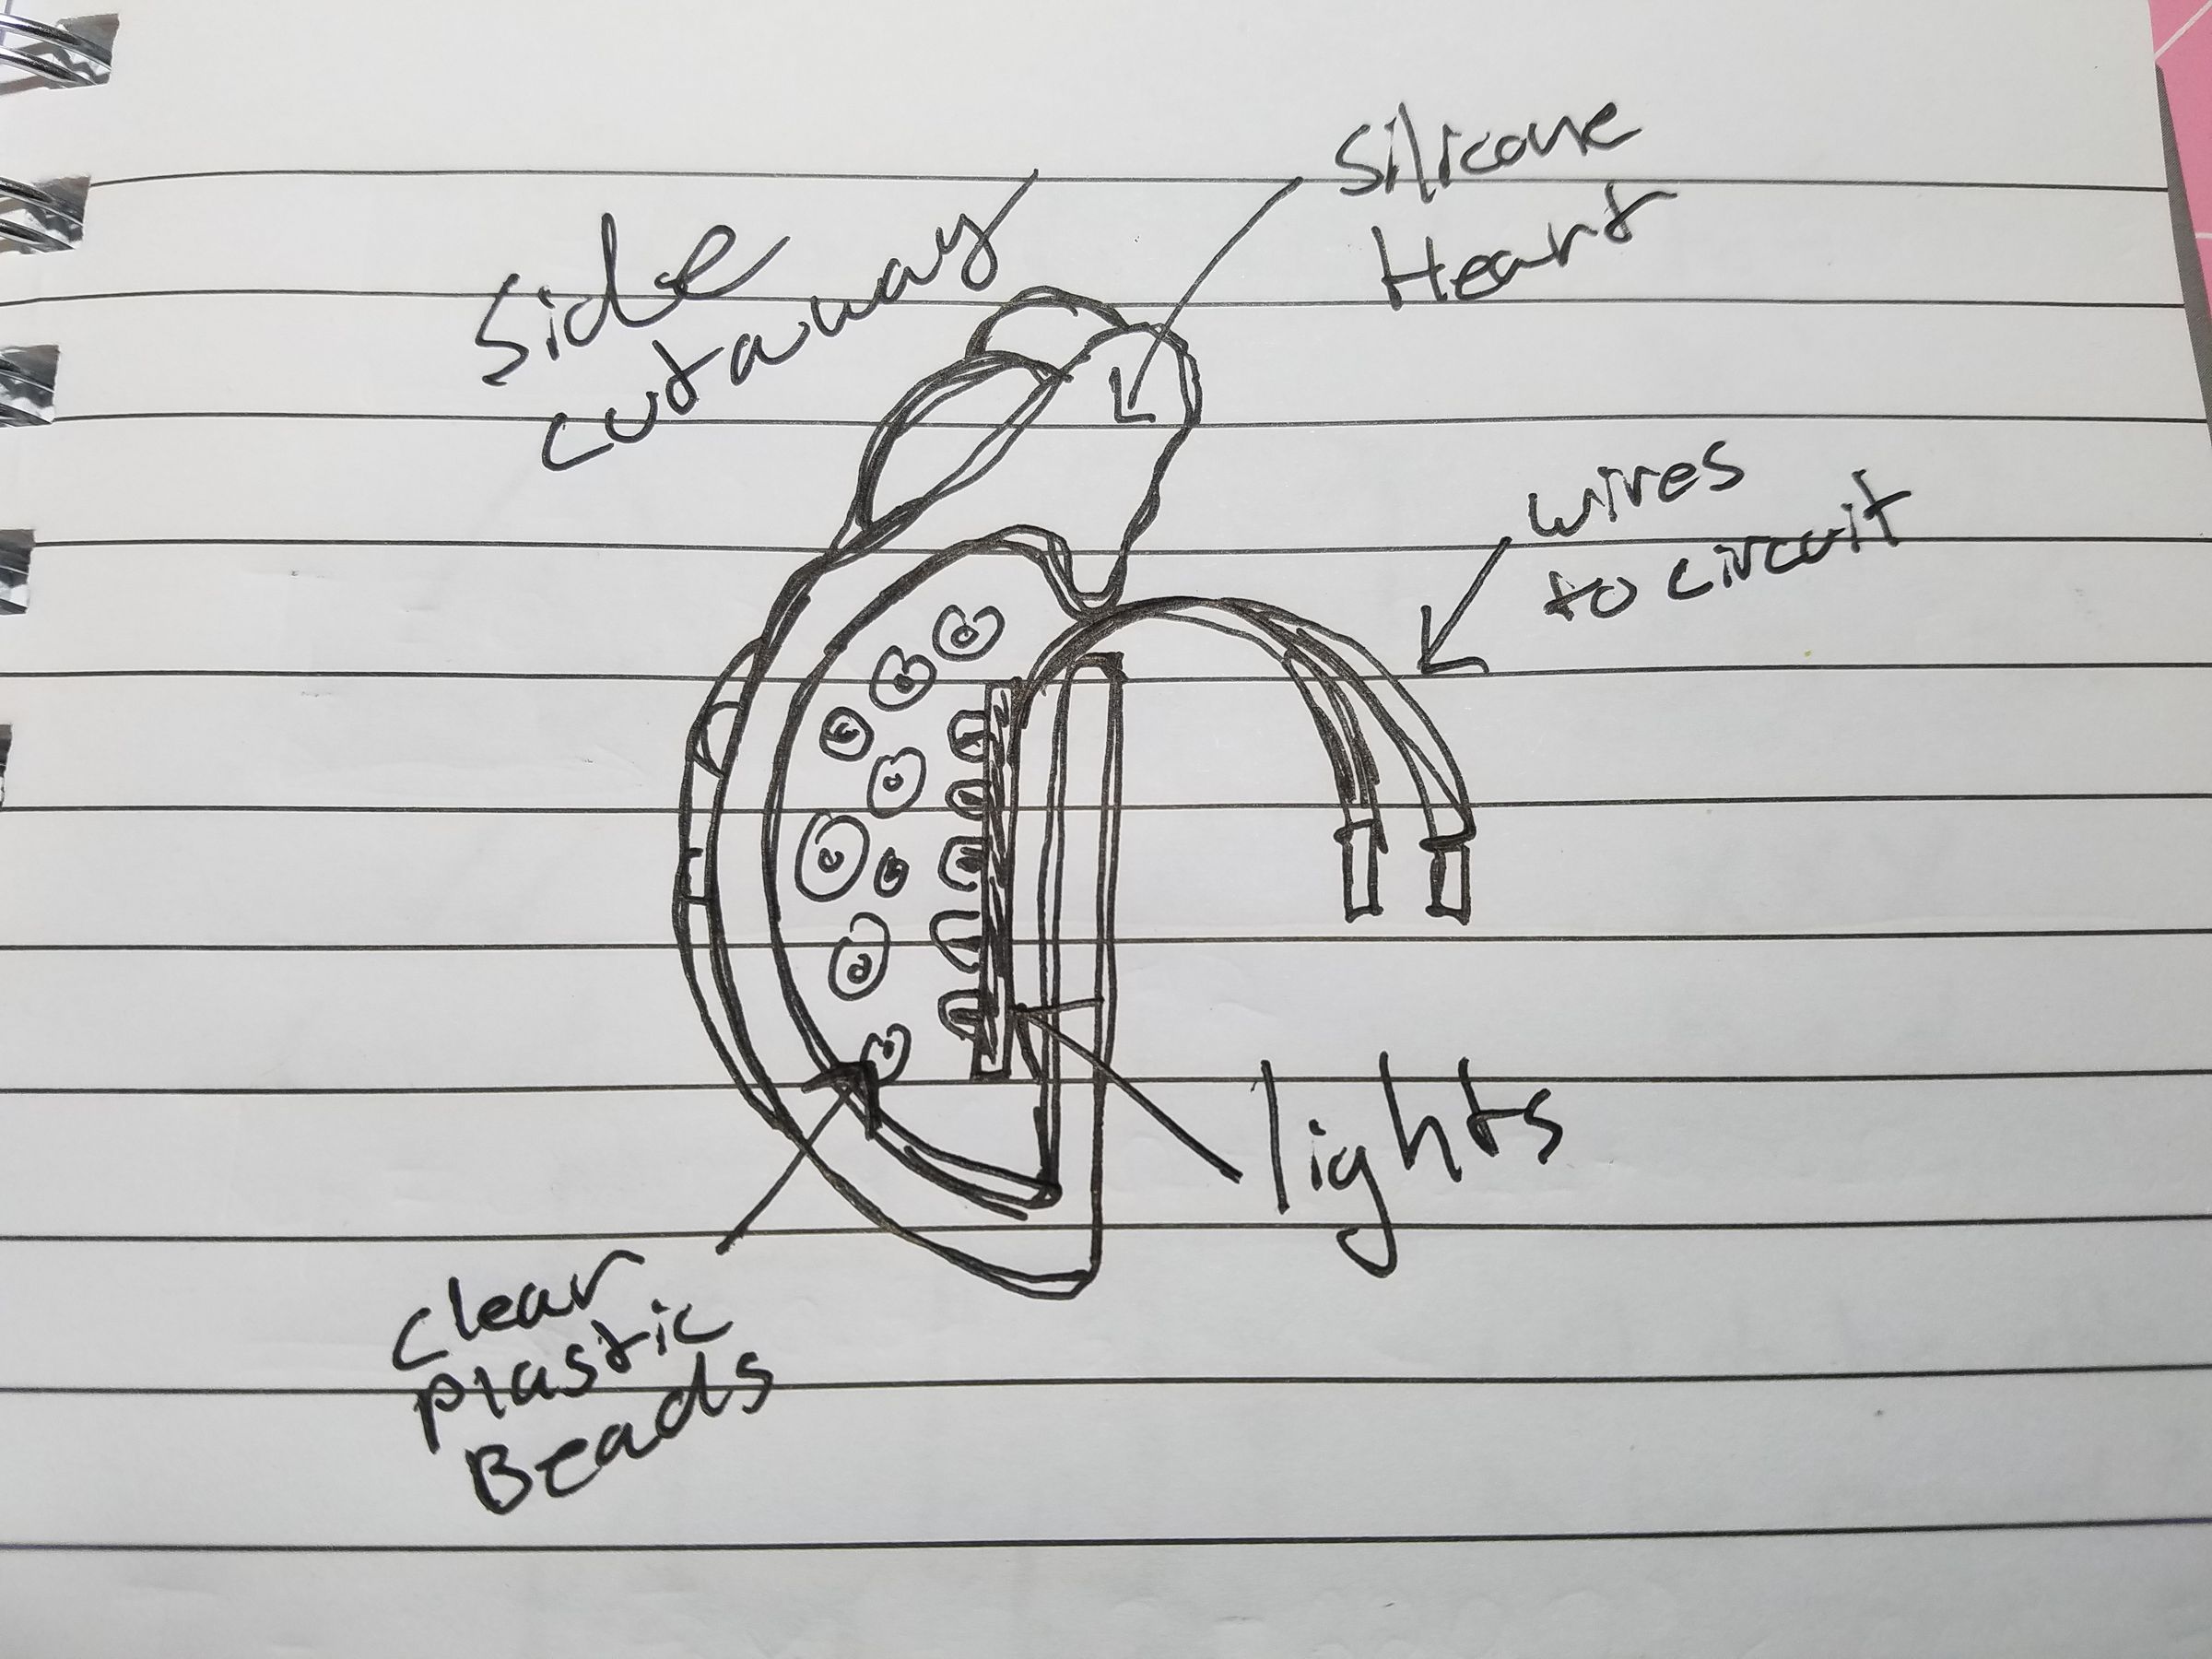 Side
cutaway
Silicone
Heart
wires
to circuit
lights
clear
plastic
Beads